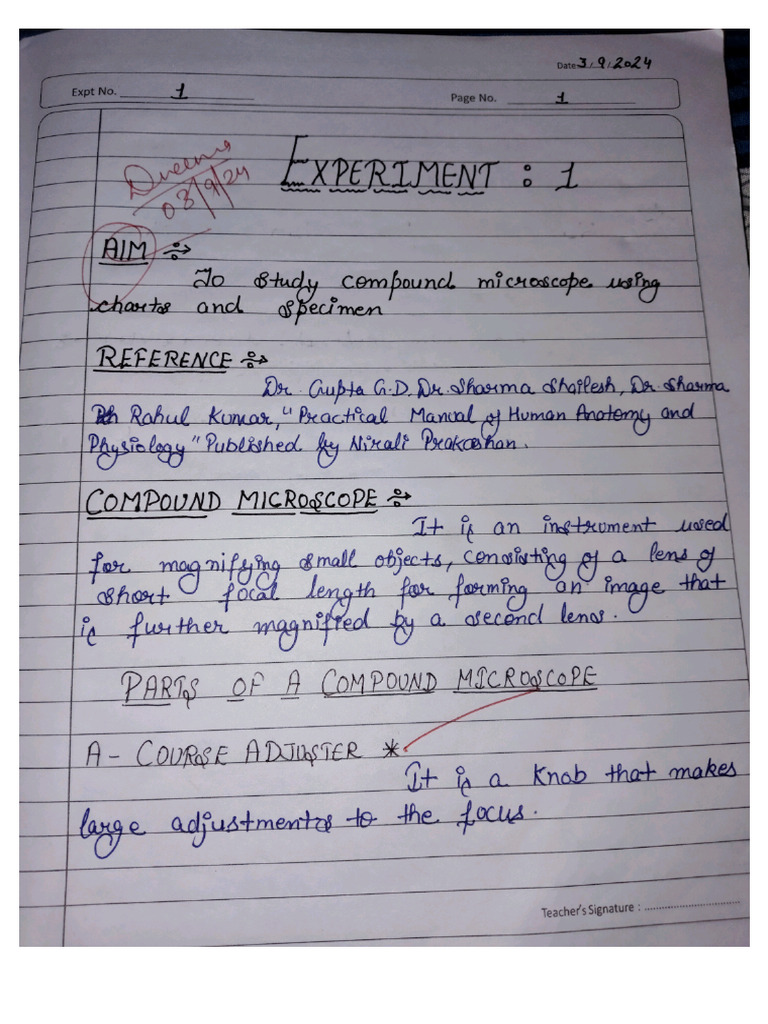 Date 3/9/2024
Expt No. 1
Page No. 1
03/9/24
EXPERIMENT : 1
AIM
To study compound microscope using
charts and specimen
REFERENCE
Dr. Gupta G.D, Dr. Sharma Shailesh, Dr. Sharma
Rahul Kumar, "Practical Manual of Human Anatomy and
Physiology" Published by Nirali Prakashan.
COMPOUND MICROSCOPE
It is an instrument used
for magnifying small objects, consisting of a lens of
short focal length for forming an image that
is further magnified by a second lens.
PARTS OF A COMPOUND MICROSCOPE
A- COURSE ADJUSTER *
It is a Knob that makes
large adjustments to the focus.
Teacher's Signature : ..............................